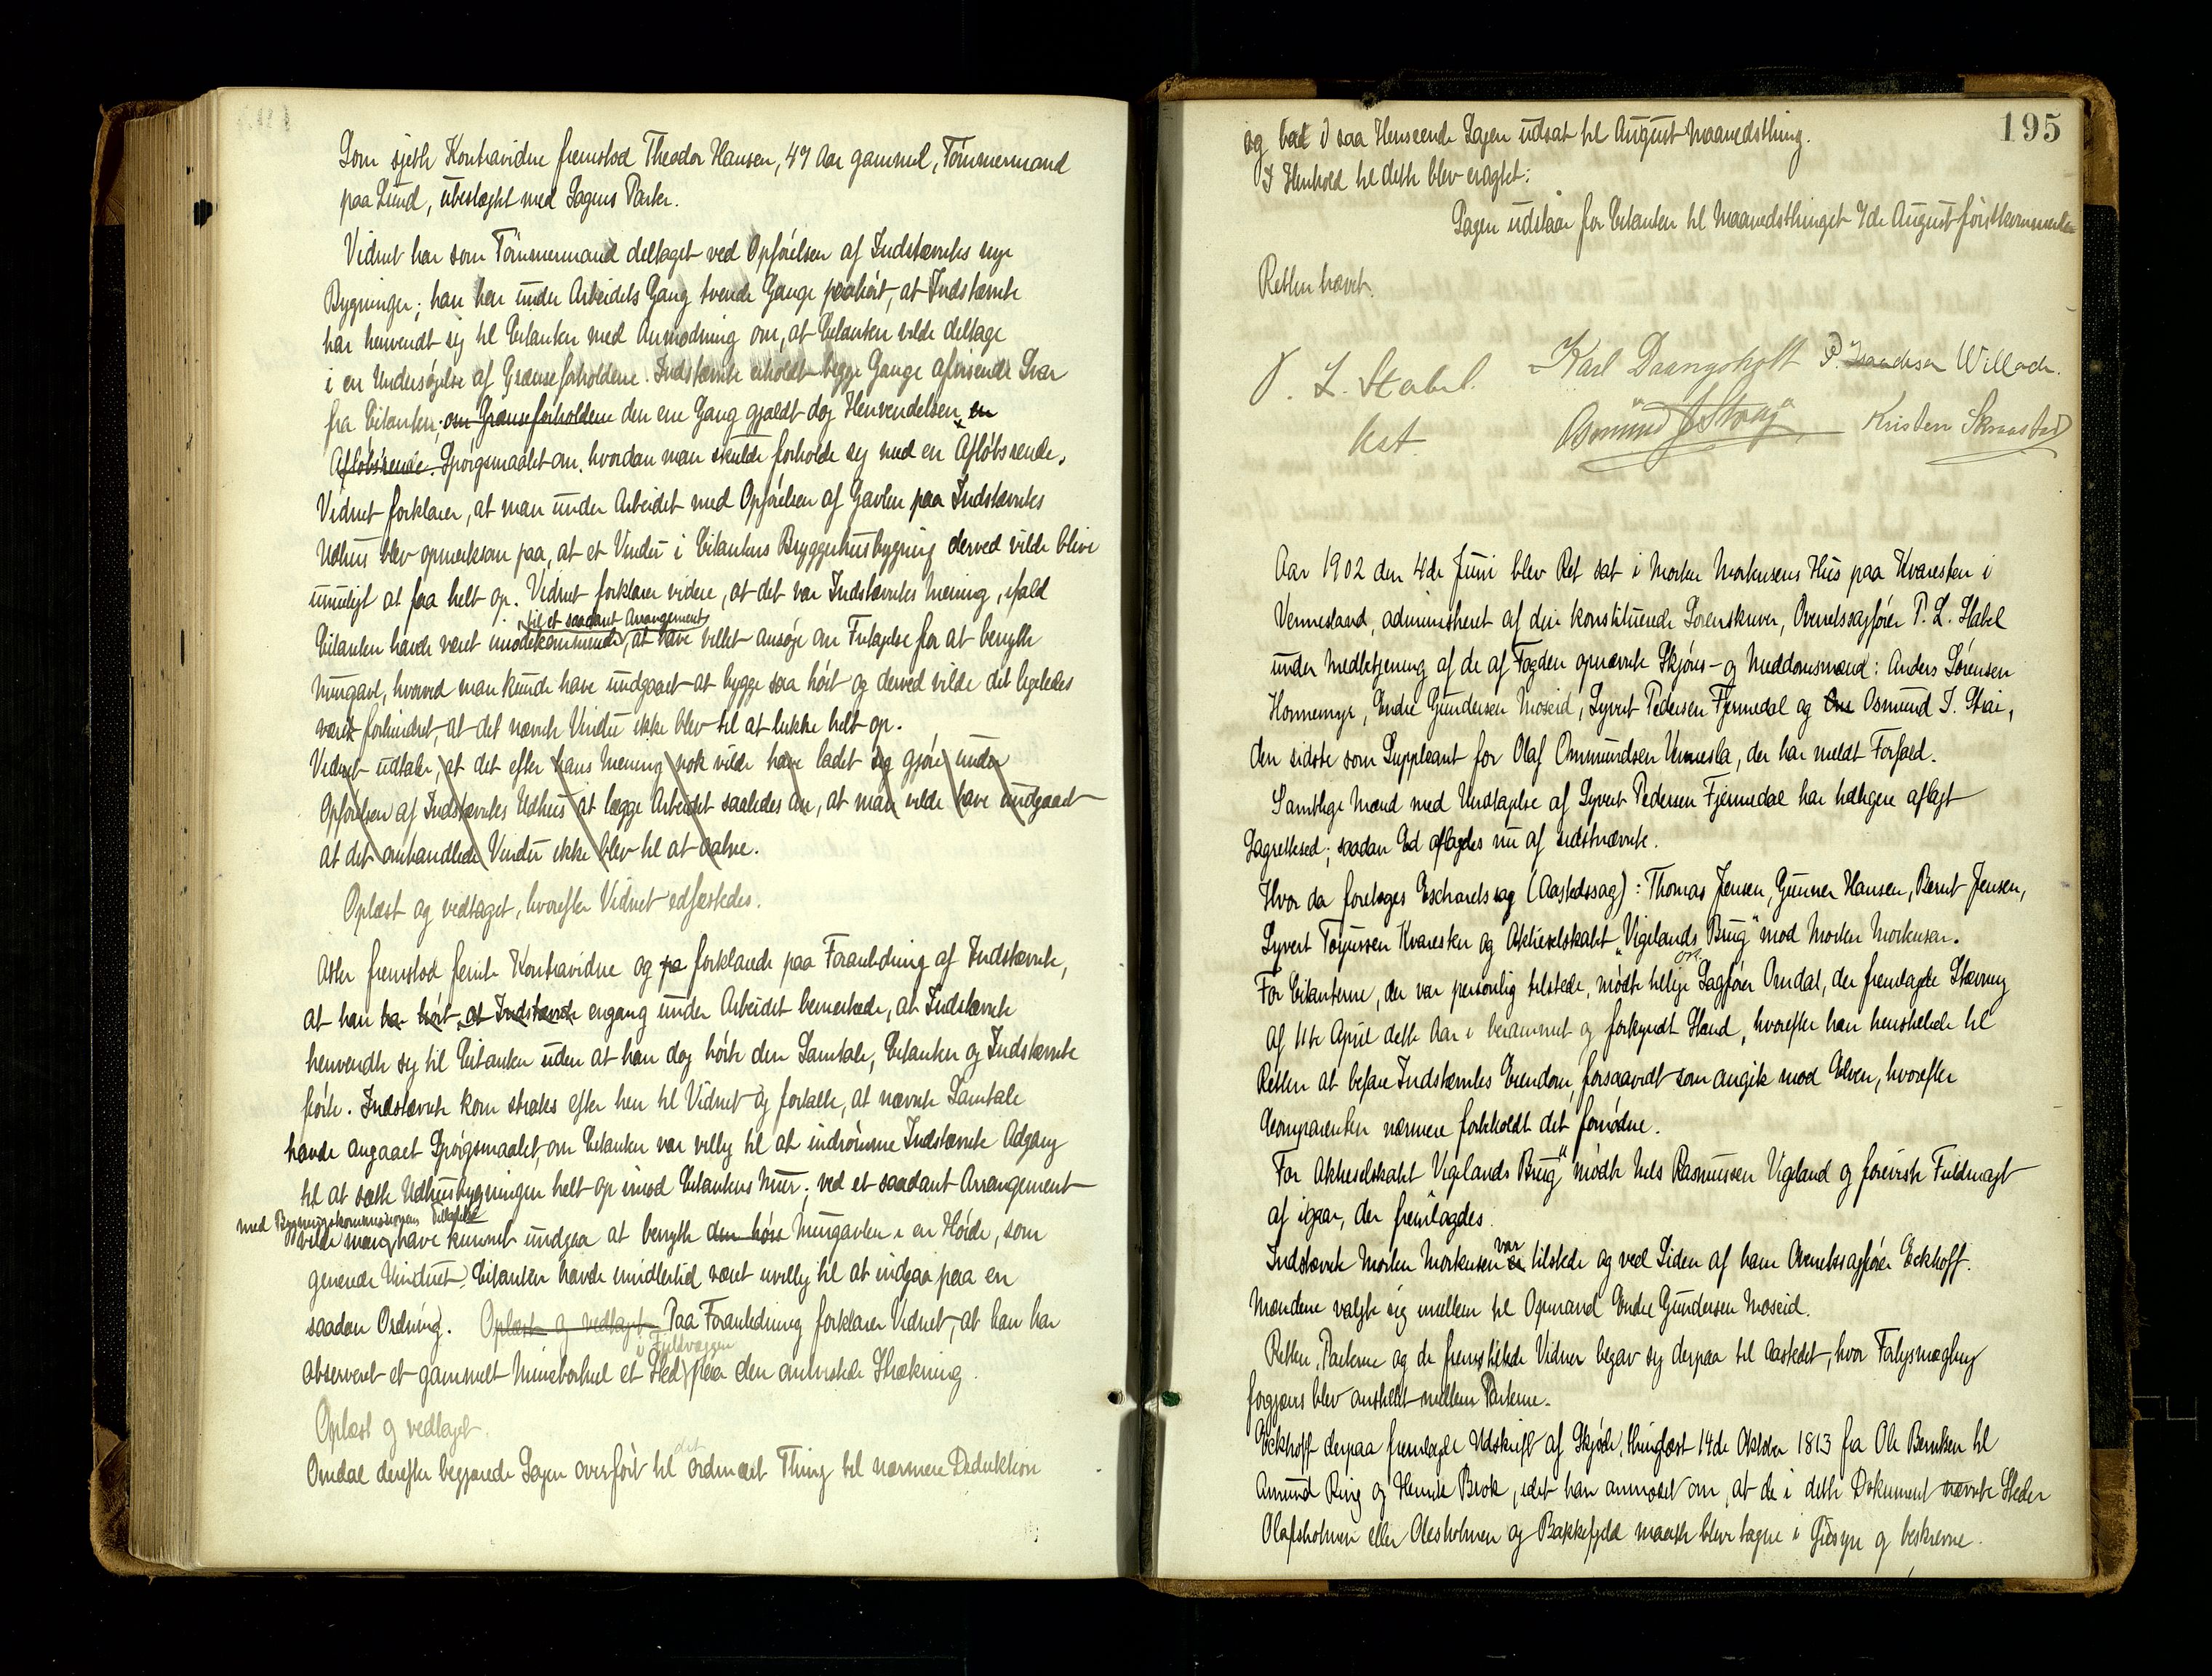 Som sjette Kontravidne fremstod Theodor Hansen, 47 Aar gammel, Tömmermand
paa Lund, ubeslægtet med Sagens Parter.
Vidnet har som Tömmermand deltaget ved Opförelsen af Indstævntes nye
Bygninger; han har under Arbeidets Gang tvende Gange paahört, at Indstævnte
har henvendt sig til Citanten med Anmodning om, at Citanten vilde deltage
i en Undersøgelse af Grænseforholdene. Indstævnte erholdt begge Gange afvisende Svar
fra Citanten; om Grænseforholdene den ene Gang gjaldt dog Henvendelsen en
Aflöbsrende. Spörgsmaalet om, hvordan man skulde forholde sig med en Aflöbsrende.
Vidnet forklarer, at man under Arbeidet med Opförelsen af Gavlen paa Indstævntes
Udhus blev opmerksom paa, at et Vindu i Citantens Bryggerhusbygning derved vilde blive
umuligt at faa helt op. Vidnet forklarer videre, at det var Indstævntes Mening, ifald
til et saadant Arrangement
Citanten havde været imødekommende, at have villet ansøge om Tilladelse for at benytte
Murgavl, hvorved man kunde have undgaaet at bygge saa höit og derved vilde det ligeledes
været forhindret, at det nævnte Vindu ikke blev til at lukke helt op.
Vidnet udtaler, at det efter hans Mening nok vilde have ladet sig gjöre under
Opförelsen af Indstævntes Udhus at lægge Arbeidet saaledes an, at man vilde have undgaaet
at det omhandlede Vindu ikke blev til at aabne.
Oplæst og vedtaget, hvorefter Vidnet edfæstedes.
Atter fremstod femte Kontravidne og pa forklarede paa Foranledning af Indstævnte,
at han har hört, at Indstævnte engang under Arbeidet bemerkede, at Indstævnte
henvendte sig til Citanten uden at han dog hörte den Samtale, Citanten og Indstævnte
förte. Indstævnte kom straks efter hen til Vidnet og fortalte, at nævnte Samtale
havde angaaet Spörgsmaalet, om Citanten var villig til at indrömme Indstævnte Adgang
til at sætte Udhusbygningen helt op imod Citantens Mur; ved et saadant Arrangement
med Bygningskommissionens Tilladelse
vilde man have kunnet undgaa at benytte den höie Murgavlen i en Höide, som
generede Vinduet. Citanten havde imidlertid været uvillig til at indgaa paa en
saadan Ordning. Oplæst og vedtaget Paa Foranledning forklarer Vidnet, at han har
i Fjeldvæggen
observeret et gammelt Mineborhul et Sted paa den omtvistede Strækning.
Oplæst og vedtaget.
det
Omdal derefter begjærede Sagen overfört til ordinært Thing til nærmere Deduktion
195
og bad i saa Henseende Sagen udsat til August Maanedsthing.
I Henhold til dette blev eragtet:
Sagen udstaar for Citanten til Maanedsthinget 7de August förstkommende
Retten hævet.
P. L. Stabel Karl Daangsholt P. Isaachsen Willoch.
kst. Osmund J Straj Kristen Skraastad
Aar 1902 den 4de Juni blev Ret sat i Morten Mortensens Hus paa Kvaresten i
Vennesland, administreret af den konstituerede Sorenskriver, Overretssagförer P. L. Stabel
under Medbetjening af de af Fogden opnævnte Skjöns- og Meddomsmænd: Anders Sörensen
Honnemyr, Endre Gundersen Moseid, Syvert Pedersen Fjermedal og Om Osmund J. Strai,
den sidste som Suppleant for Olaf Ommundsen Vennesla, der har meldt Forfald.
Samtlige Mænd med Undtagelse af Syvert Pedersen Fjermedal har tidligere aflagt
Lagrettesed; saadan Ed aflagdes nu af sidstnævnte.
Hvor da foretoges Extraretssag (Aastedssag): Thomas Jensen, Gunner Hansen, Bernt Jensen,
Syvert Torjussen Kvaresten og Aktieselskabet "Vigelands Brug" mod Morten Mortensen.
For Citanterne, der var personlig tilstede, mödte tillige Sagförer Omdal, der fremlagde Stævning
af 11te April dette Aar i berammet og forkyndt Stand, hvorefter han henstillede til
Retten at befare Indstævntes Eiendom, forsaavidt som angik mod Elven, hvorefter
Comparenten nærmere forbeholdt det fornødne.
For Aktieselskabet "Vigelands Brug" mødte Nels Rasmussen Vigeland og foreviste Fuldmagt
af igaar, der fremlagdes.
var
Indstævnte Morten Mortensen er tilstede og ved Siden af ham Overretssagförer Eckhoff.
Mændene valgte sig imellem til Opmand Endre Gundersen Moseid.
Retten, Parterne og de fremstillede Vidner begav sig derpaa til Aastedet, hvor Forligsmægling
forgjæves blev anstillet mellem Parterne.
Eckhoff derpaa fremlagde Udskrift af Skjöde, thinglæst 14de Oktober 1813 fra Ole Berntsen til
Amund Ring og Henrik Brok, idet han anmodet om, at de i dette Dokument nævnte Steder
Olafsholmen eller Olesholmen og Bakkefjeld maatte blive tagne i Øiesyn og beskrevne.